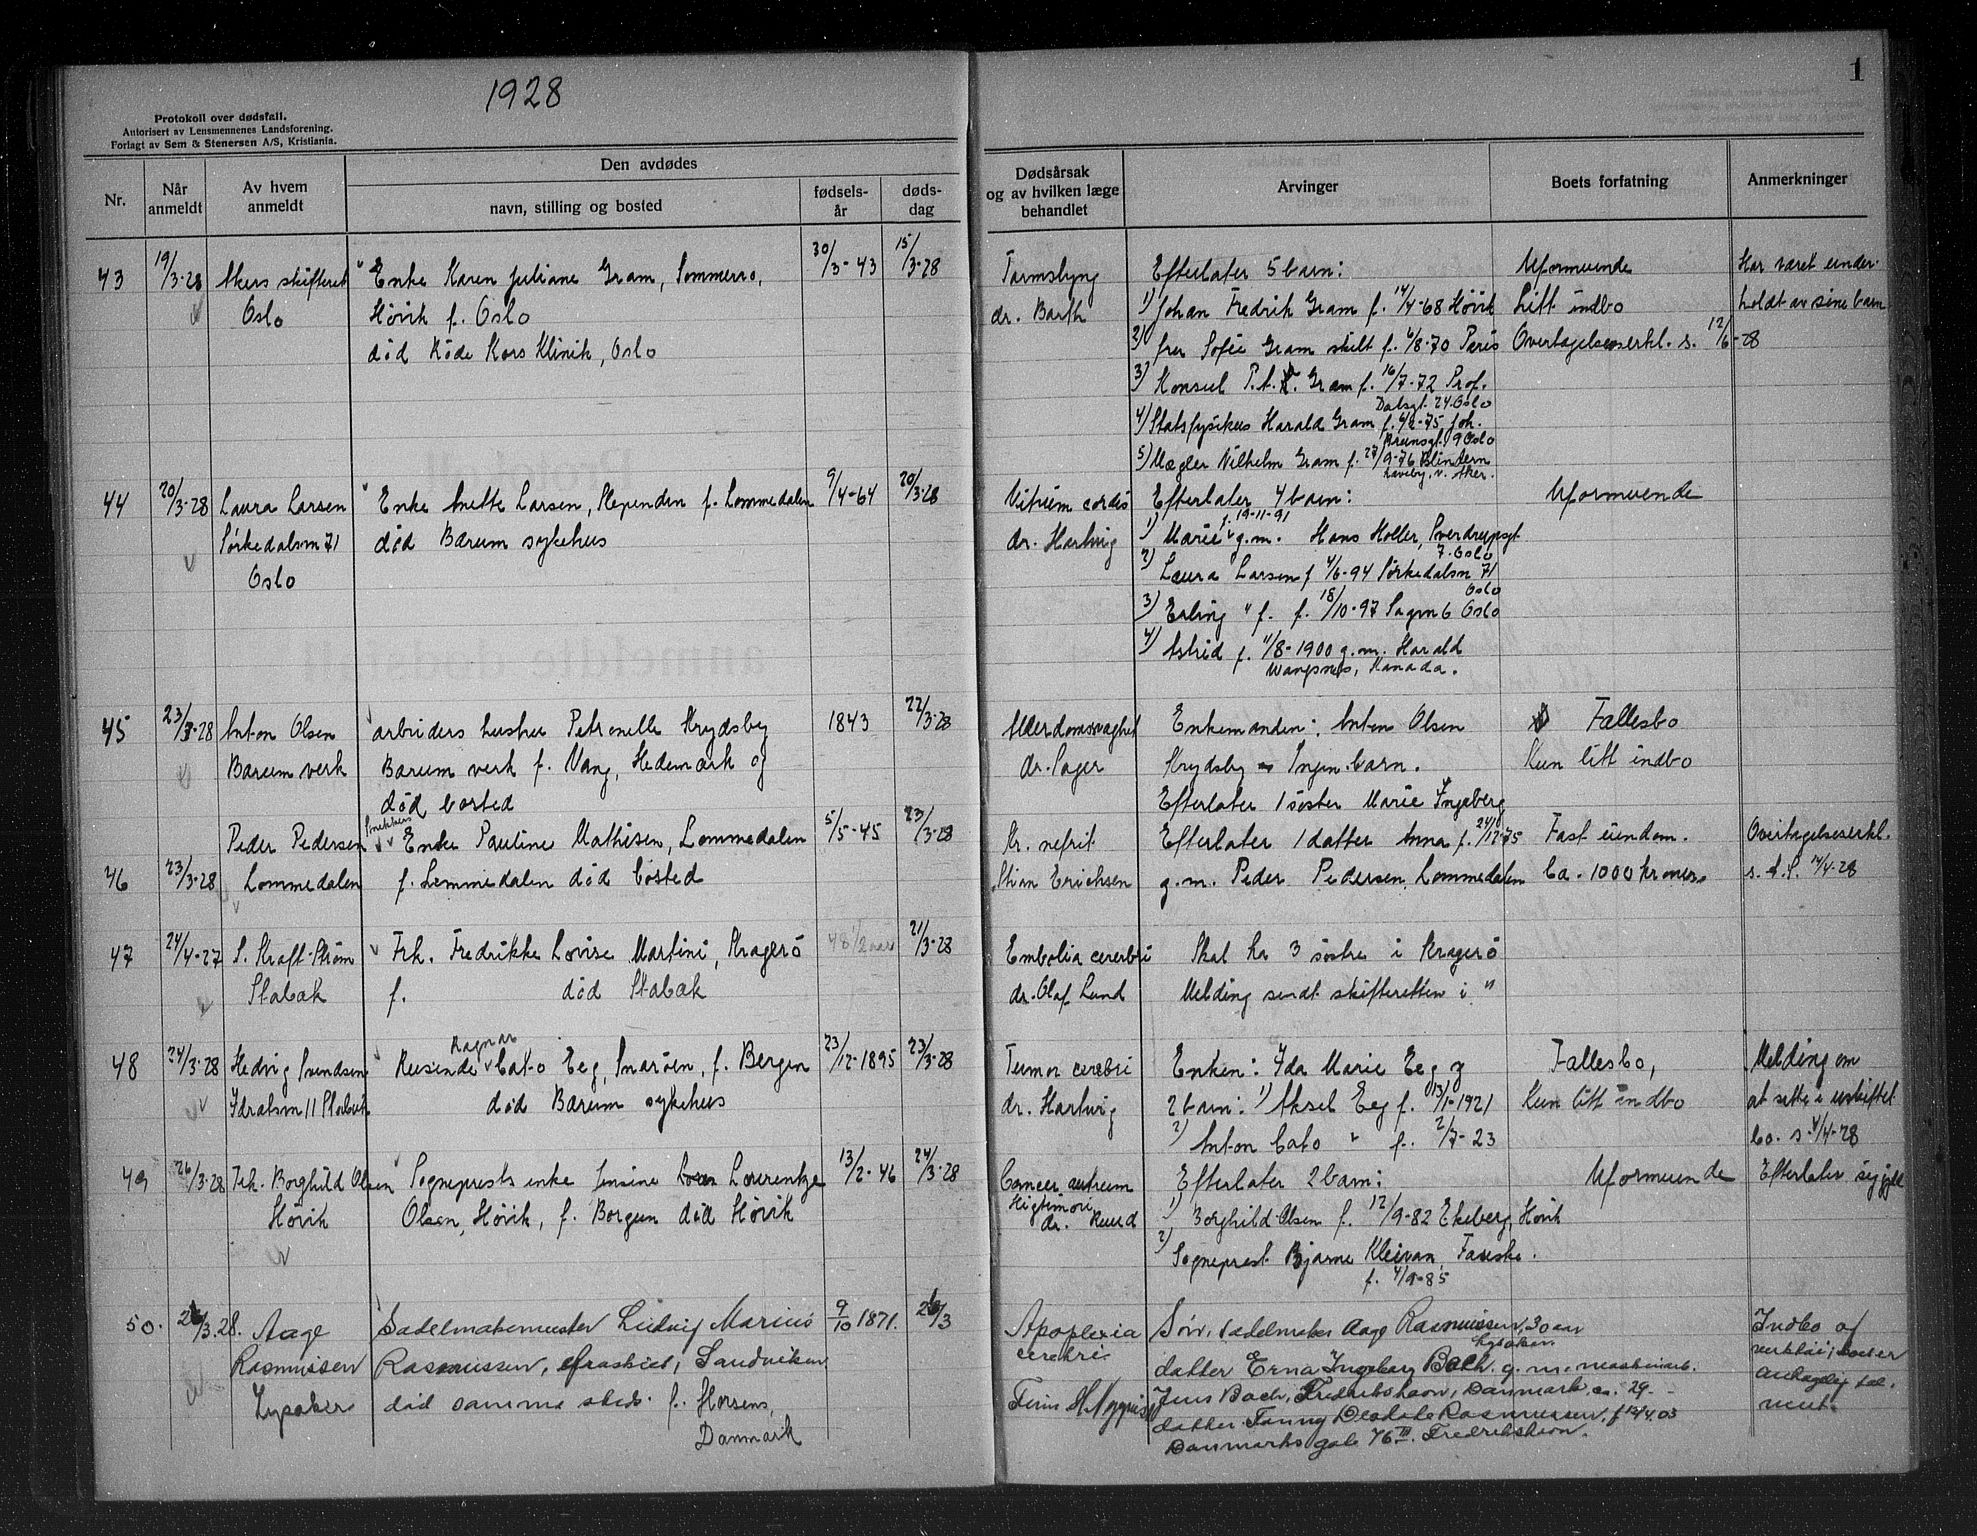 1928
1
Protokoll over dødsfall.
Autorisert av Lensmennenes Landsforening.
Forlagt av Sem & Stenersen A/S, Kristiania.
Nr.
Når anmeldt
Av hvem anmeldt
Den avdødes
navn, stilling og bosted
fødsels-
år
døds-
dag
Dødsårsak
og av hvilken læge
behandlet
Arvinger
Boets forfatning
Anmerkninger
43 19/3-28 Akers skifteret Enke Karen Juliane Gram, Sommerro, 30/3-43 15/3-28 Tarmslyng Efterlater 5 barn: Uformuende Har været under-
Oslo Høvik f. Oslo dr. Barth 1) Johan Fredrik Gram f. 14/4-68 Høvik Litt indbo holdt av sine barn
død Røde Kors Klinik, Oslo 2) fru Sofie Gram skilt f. 6/8-70 Paris Overtagelseserkl. s. 12/6-28
3) Konsul P.A. Gram f. 16/7-72 Prof.
Dalsgt. 24 Oslo
4) Statsfysikus Harald Gram f. 4/2-75 Joh.
Bruunsgt. 9 Oslo
5) Mægler Vilhelm Gram f. 27/9-76 Blindern
v. Aker.
44 20/3-28 Laura Larsen Enke Anette Larsen, Slependen f. Lommedalen 9/4-64 20/3-28 Vitium cordis Efterlater 4 barn: Uformuende
f. 19-11-91
Sørkedalsvn 71 død Bærum sykehus dr. Hartvig 1) Marie g.m. Hans Holler, Sverdrupsgt
7. Oslo
Oslo 2) Laura Larsen f 4/6-94 Sørkedalsvn 71
Oslo
3) Erling " f. f. 18/10-97 Sagvn 6 Oslo
4) Astrid f. 11/8-1900 g.m. Harald
Wangsnes, Kanada.
45 23/3-28 Anton Olsen arbeiders hustru Petronelle Krydsby 1843 22/3-28 Alderdomssvaghet Enkemanden: Anton Olsen Fællesbo
Bærum verk Bærum verk f. Vang, Hedemark og dr. Sager Krydsby Ingen barn. Kun litt indbo
død bosted Efterlater 1 søster Marie Ingeberg
Peder Pedersen Enke Pauline Mathisen, Lommedalen 5/5-45 23/3-28 Kr. nefrit Efterlater 1 datter Anna f. 24/12-75 Fast eiendom. Overtagelseserkl.
46 23/3-28 Lommedalen f. Lommedalen død bosted Stian Erichsen g.m. Peder Pedersen, Lommedalen ca. 1000 kroner s. d. 14/4-28
47 24/4-27 S. Kraft-Strøm Frk. Fredrikke Lovise Martini, Kragerö 48 1/2 aar 21/3-28 Embolia cerebri Skal ha 3 søstre i Kragerö
Stabæk f. død Stabæk dr. Olaf Lund Melding sendt skifteretten i "
48 24/3-28 Hedvig Svendsen Reisende Ragnar Cato Eeg, Snarøen, f. Bergen 23/12-1895 23/3-28 Tumor cerebri Enken: Ida Marie Eeg og Fællesbo, Melding om
Idrætsvn 11 Stabæk død Bærum sykehus dr. Hartvig 2 barn: 1) Aksel Eeg f. 13/1-1921 Kun litt indbo at sitte i uskiftet
2) Anton Cato " f. 2/7-23 bo. s. 4/4-28
49 26/3-28 Frk. Borghild Olsen Sogneprests enke Jensine Laurentze 13/2-46 24/3-28 Cancer Efterlater 2 barn: Uformuende Efterlater sig gjeld
Høvik Olsen, Høvik, f. Borgun død Høvik dr. Ruud 1) Borghild Olsen f. 12/9-82 Ekeberg, Høvik
2) Sogneprest Bjarne Kleivan, Fauske.
f. 4/9-85
50. 26/3.28. Aage Sadelmakermester Ludvig Marius 9/10 1871. 26/3 Apoplexia Søn, sadelmaker Aage Rasmussen, 30 aar Indbo og
Lysaker.
Rasmussen Rasmussen, Sandviken cerebri datter Erna Ingeborg Bach. g.m. maskinarb. verktøi,
Lysaker død samme sted. f. Horsens, Finn Jens Bach, Fredrikshavn, Danmark, ca. 29.
Danmark datter Fanny Rasmussen, f 12/4.03
Danmarks gate 76 III. Fredrikshavn.